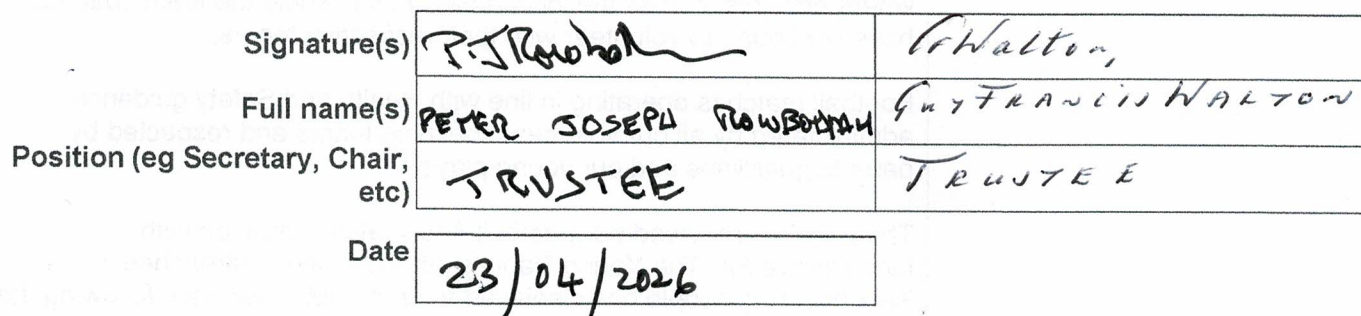 Signature(s) P.J Rowboth GFWalton,
Full name(s) PETER JOSEPH ROWBOTHAM GUY FRANCIS WALTON
Position (eg Secretary, Chair, etc) TRUSTEE TRUSTEE
Date 23/04/2026